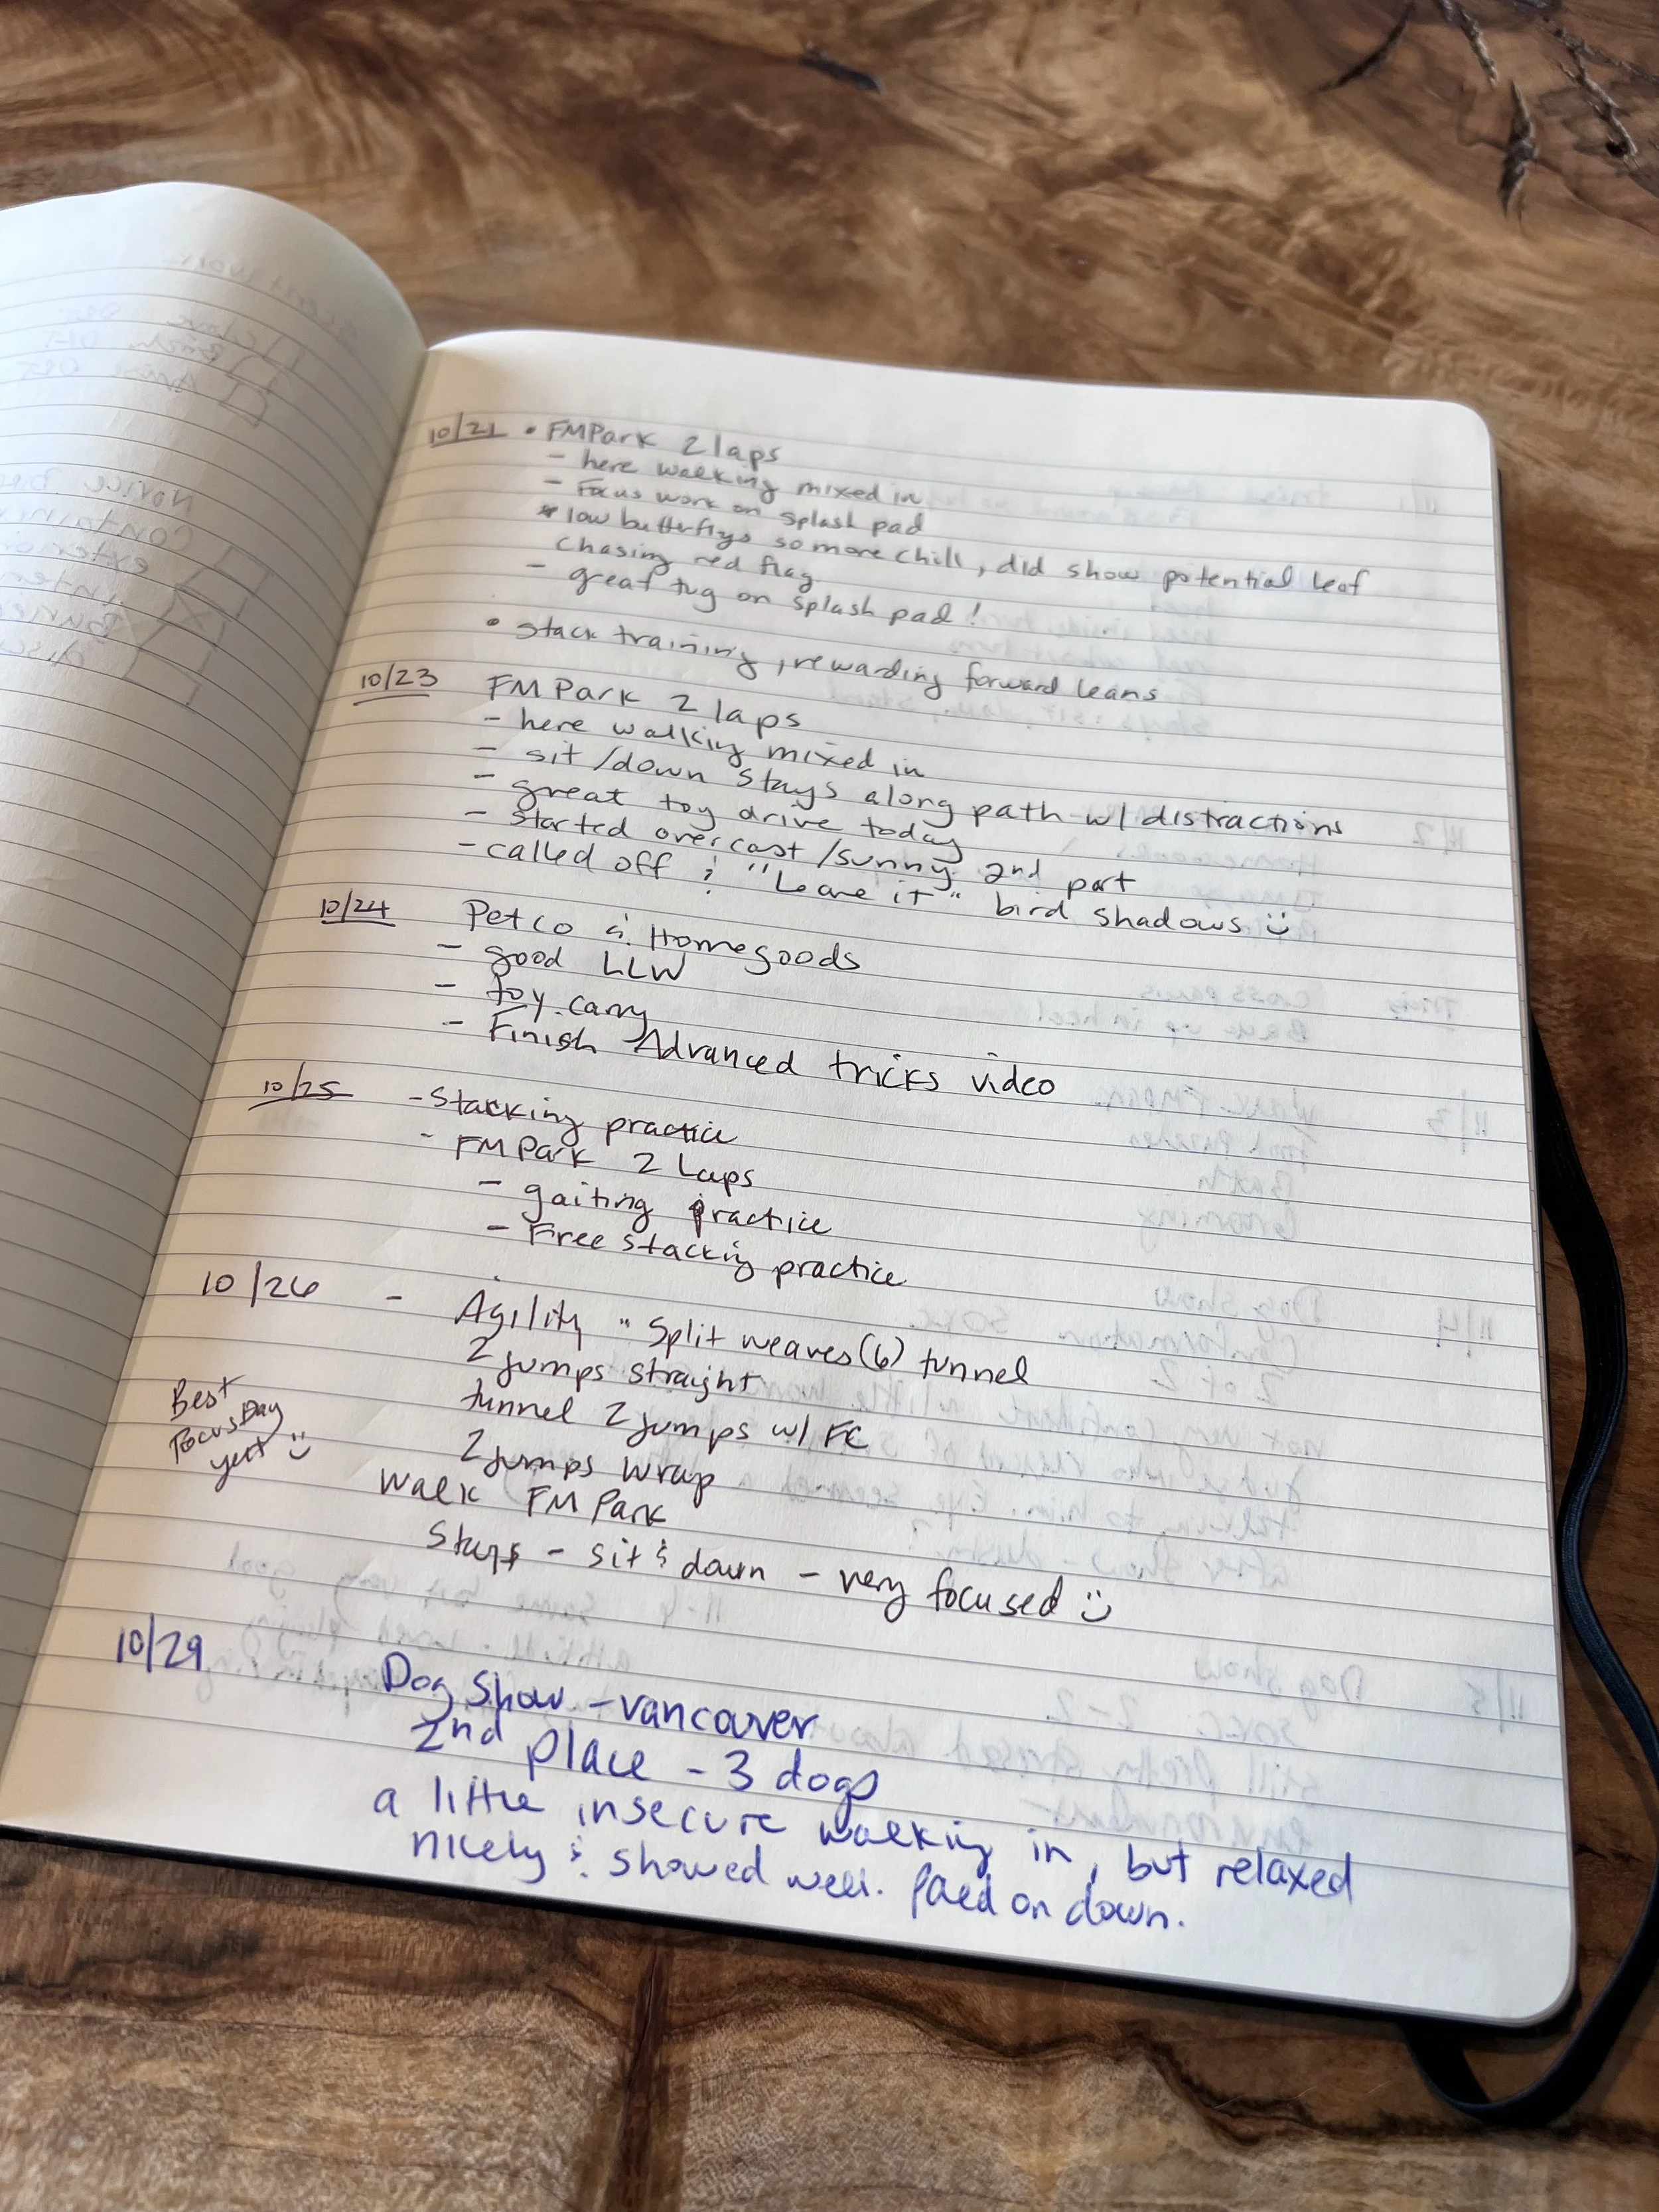 10/21 • FMPark 2 laps
- here walking mixed in
- Focus work on splash pad
* low butterflys so more chill, did show potential leaf
chasing red flag
- great tug on splash pad!
• stack training, rewarding forward leans
10/23 FM Park 2 laps
- here walking mixed in
- sit/down stays along path w/ distractions
- great toy drive today
- started overcast/sunny 2nd part
- called off & "Leave it" bird shadows :)
10/24 Petco & Homegoods
- good LLW
- toy carry
- Finish Advanced tricks video
10/25 - Stacking practice
- FM Park 2 Laps
- gaiting practice
- Free stacking practice
10/26 - Agility " Split weaves (6) tunnel
2 jumps straight
tunnel 2 jumps w/ FC
2 jumps wrap
Best
Focus Day
yet :)
Walk FM Park
Stays - sit & down - very focused :)
10/29 Dog Show - Vancouver
2nd place - 3 dogs
a little insecure walking in, but relaxed
nicely & showed well. on down.